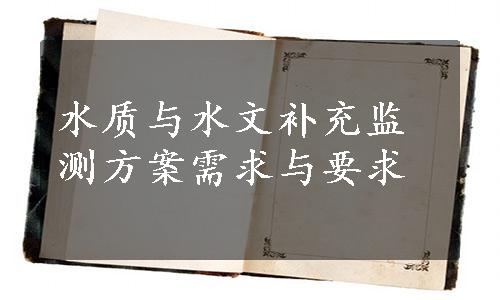 水质与水文补充监
测方案需求与要求